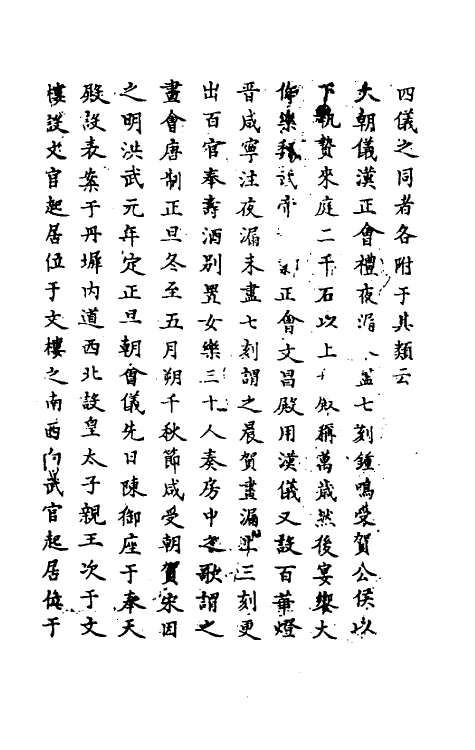 四儀之同者各附于其類云
大朝儀漢正會禮夜漏盡七刻鍾鳴受賀公侯以
下執贄來庭二千石以上殿稱萬歲然後宴饗大
作樂魏武帝正會文昌殿用漢儀又設百華燈
晉咸寧注夜漏未盡七刻謂之晨賀晝漏上三刻更
出百官奉壽酒别置女樂三十人奏房中之歌謂之
晝會唐制正旦冬至五月朔千秋節咸受朝賀宋因
之明洪武元年定正旦朝會儀先日陳御座于奉天
殿設表案于丹墀内道西北設皇太子親王次于文
樓設文官起居位于文樓之南西向武官起居位于